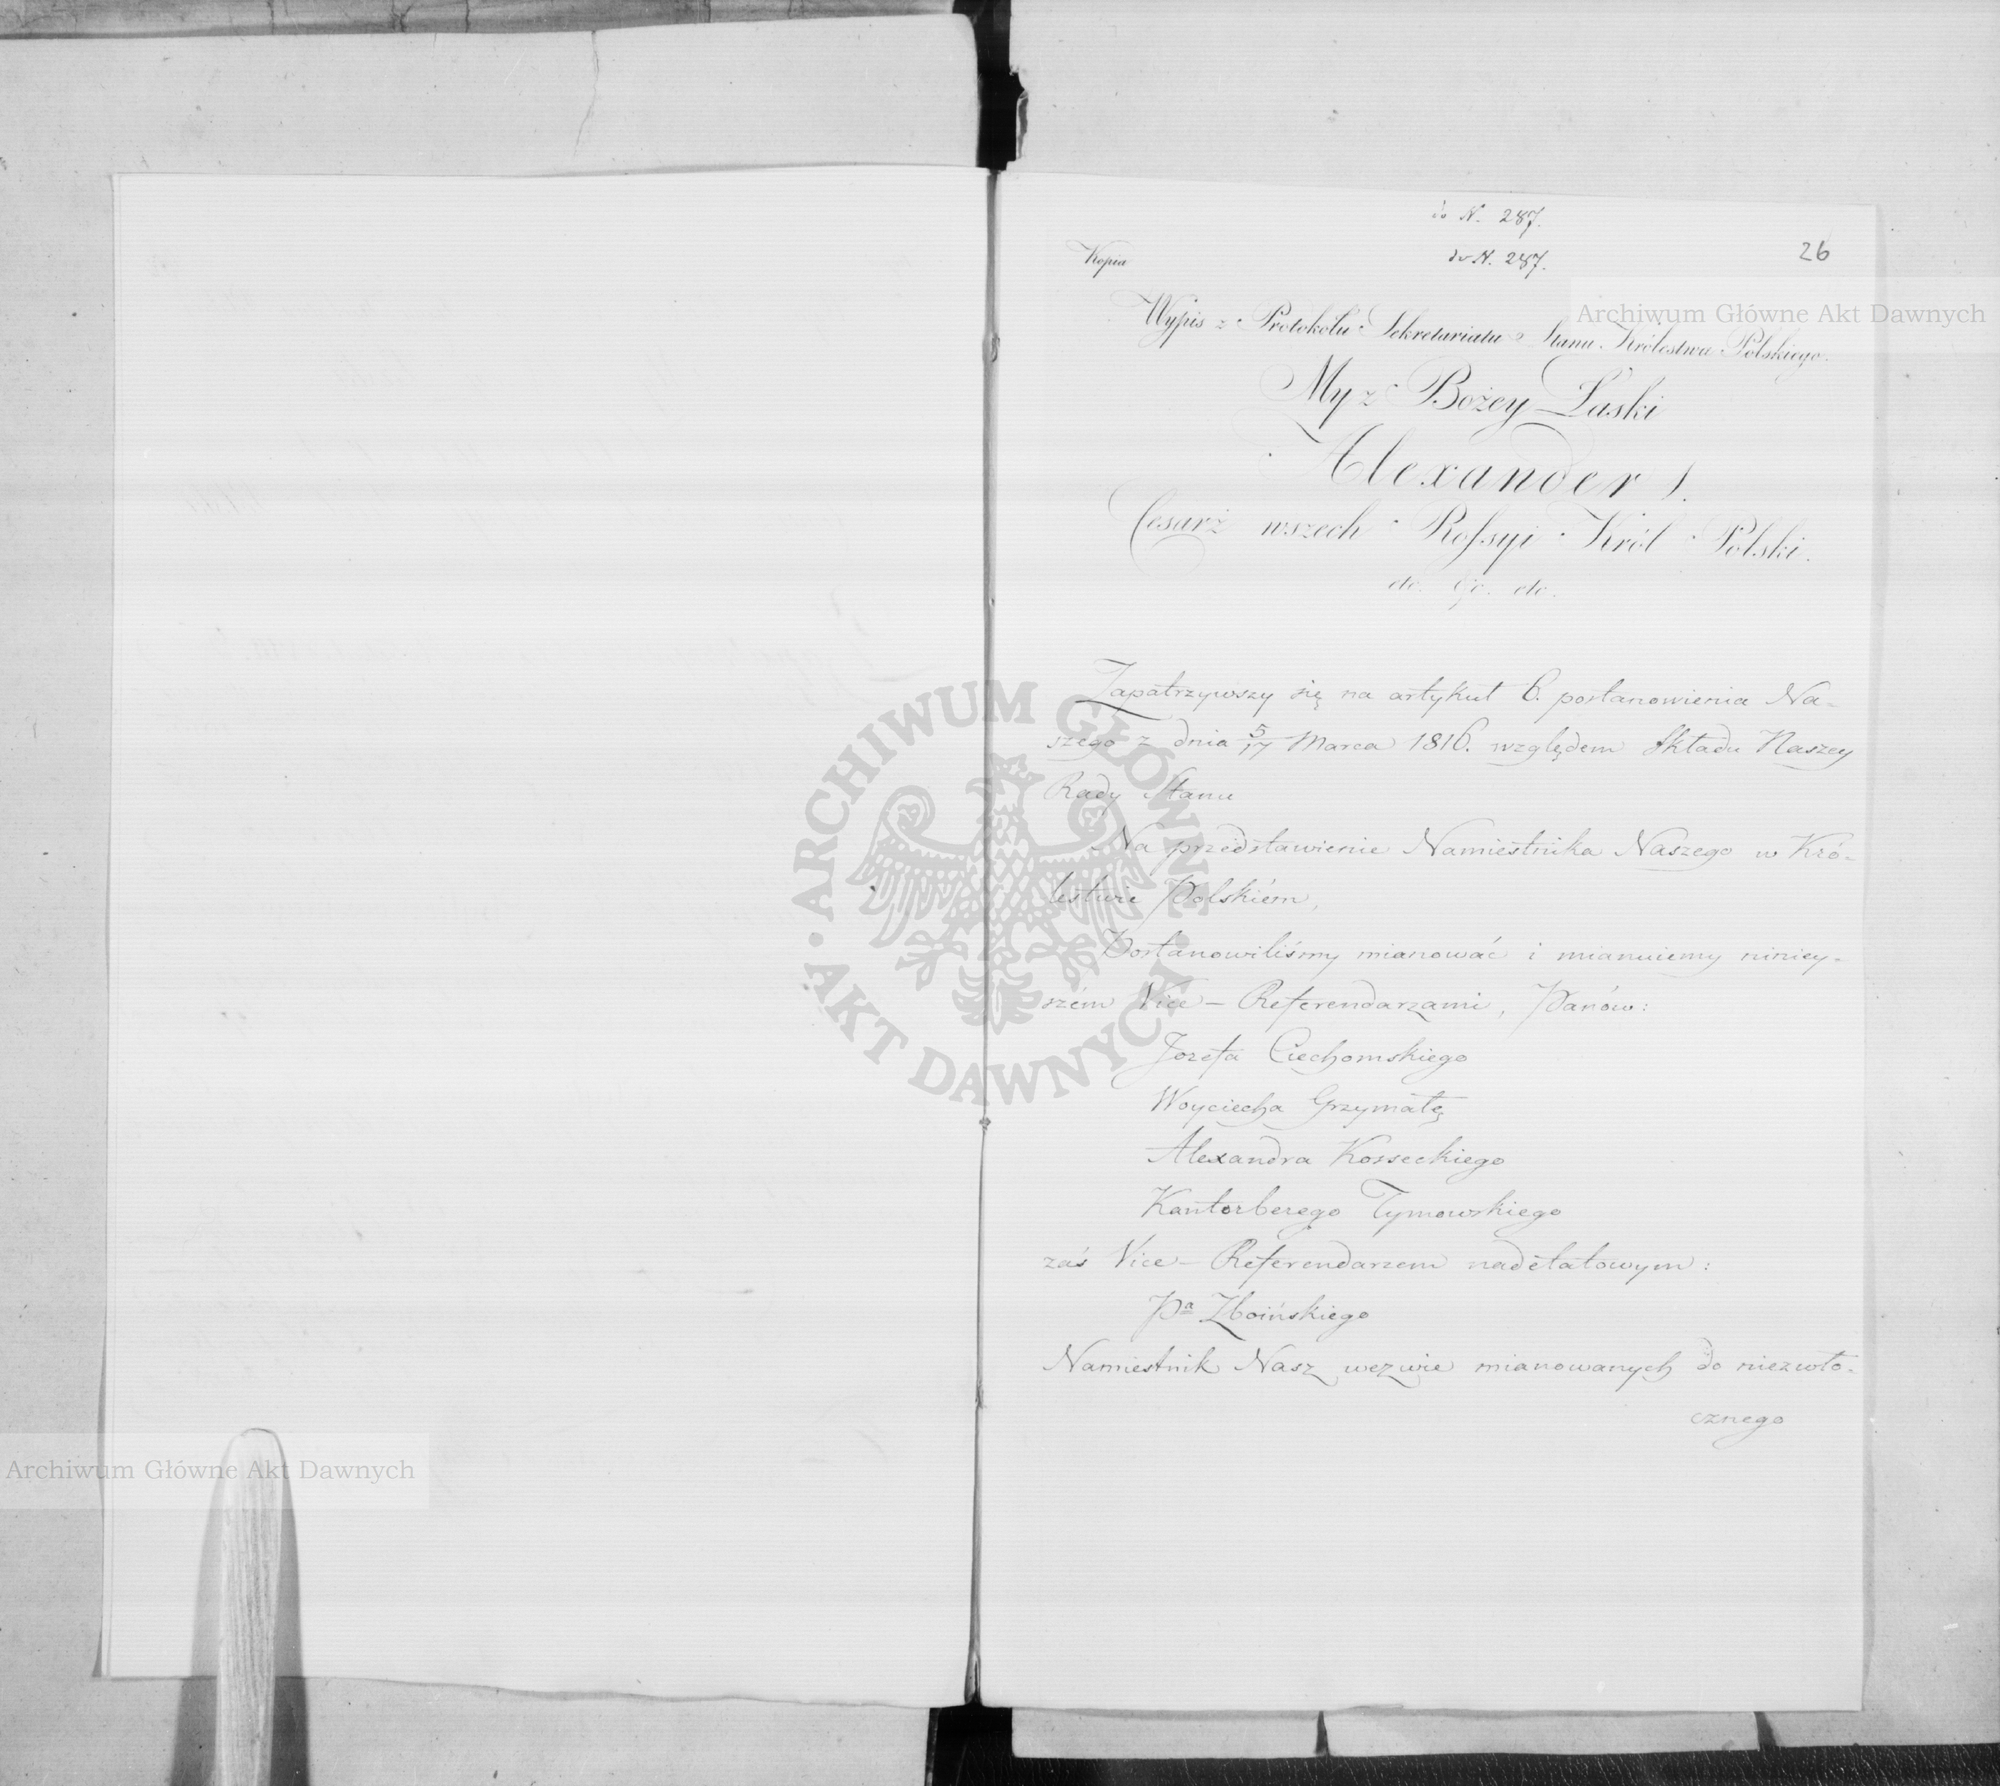 do N. 287.
Kopia
do N. 287.
26
Wypis z Protokółu Sekretariatu Stanu Królestwa Polskiego.
My z Bożey Łaski
Alexander I.
Cesarz wszech Rossyi Król Polski.
etc. etc. etc.
Zapatrzywszy się na artykuł 6. postanowienia Na-
szego z dnia 5/17 Marca 1816. względem składu Naszey
Rady Stanu
Na przedstawienie Namiestnika Naszego w Kró-
lestwie Polskiém,
Postanowiliśmy mianować i mianuiemy niniey-
szém Vice-Referendarzami, Panów:
Jozefa Ciechomskiego
Woyciecha Grzymałę
Alexandra Kosseckiego
Kantorberego Tymowskiego
zaś Vice-Referendarzem nadetatowym:
Pa Zboińskiego
Namiestnik Nasz wezwie mianowanych do niezwło-
cznego
Archiwum Główne Akt Dawnych
ARCHIWUM GŁÓWNE AKT DAWNYCH
Archiwum Główne Akt Dawnych